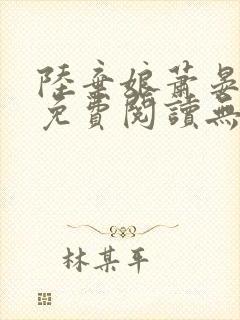 陸棄娘蕭晏
免費閱讀無
林某平